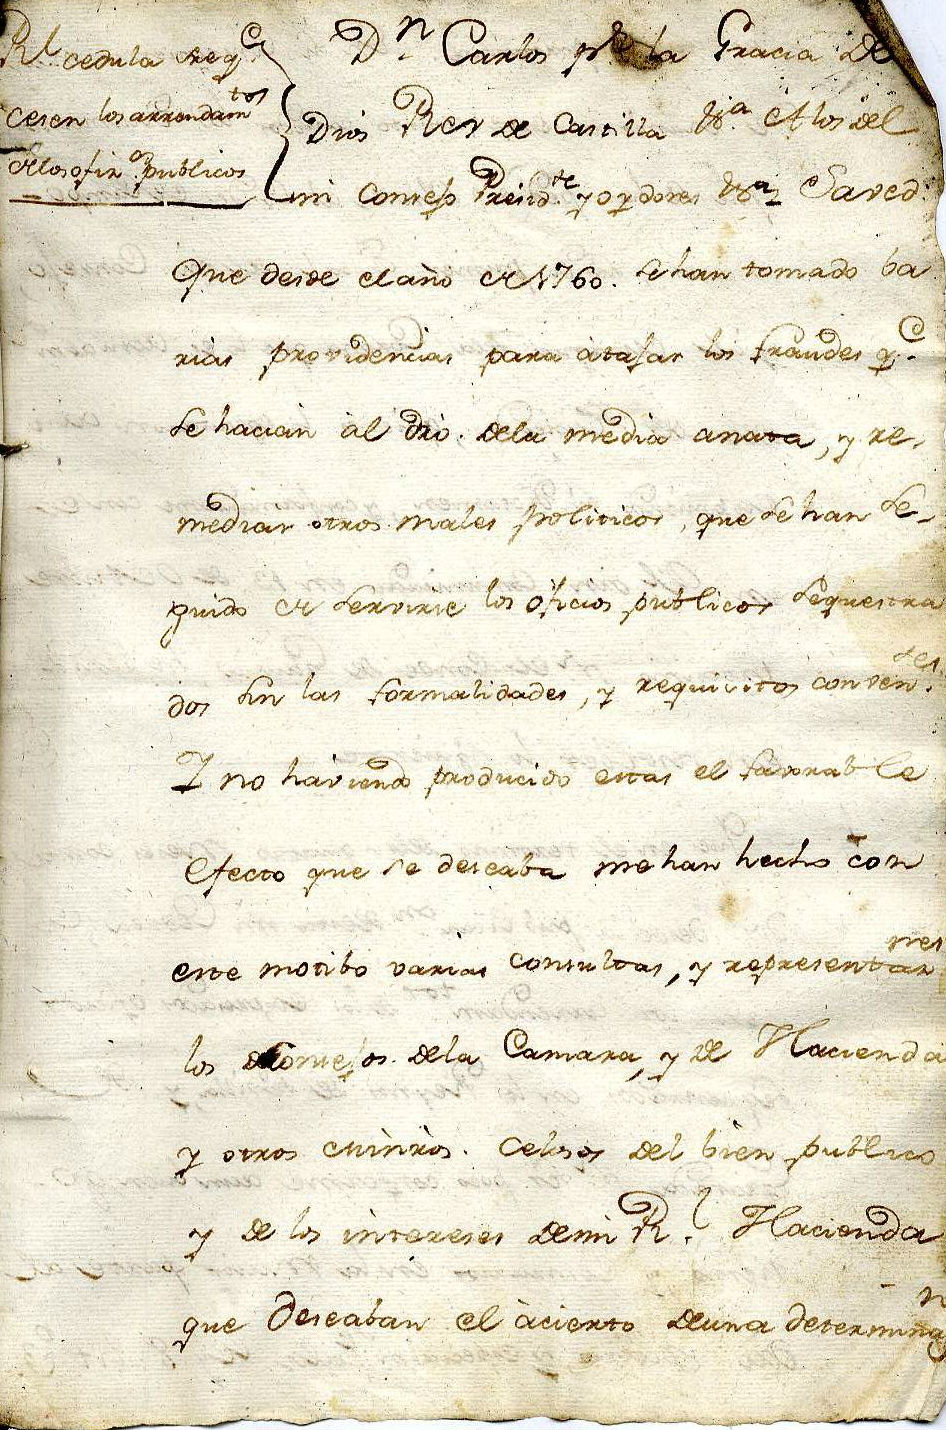 Rl. cedula sre. q.e
cesen los arrendam.tos
de los ofiz.os publicos
Dn. Carlos pr. la Gracia de
Dios Rey de Castilla &.a A los del
mi Consejo Presid.te y oydores &.a Saved
Que desde el año de 1760. se han tomado ba
rias providencias para atajar los fraudes q.e
se hacian al dro. de la media anata, y re-
mediar otros males politicos, que se han se-
guido de servirse los oficios publicos sequestra
dos sin las formalidades, y requisitos conven.tes
Y no haviendo producido estas el favorable
efecto que se deseaba me han hecho con
este motibo varias consultas, y representan.nes
los Consejos de la Camara, y de Hacienda
y otros Minròs. Celosos del bien publico
y de los intereses de mi Rl. Hacienda
que deseaban el acierto de una determinaz.n